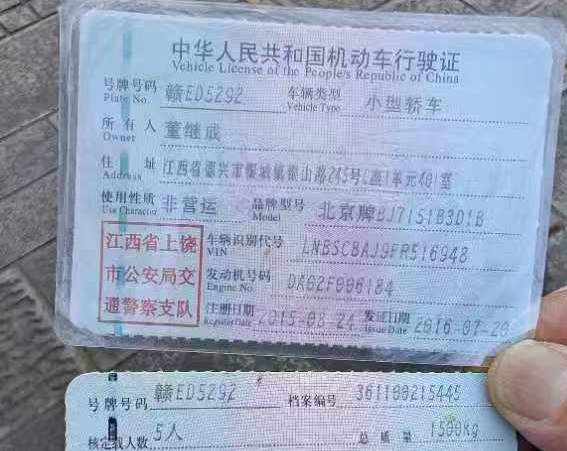 中华人民共和国机动车行驶证
Vehicle License of the People's Republic of China
号牌号码 赣ED5292 车辆类型 小型轿车
Plate No. Vehicle Type
所有人 董继成
Owner
住址 江西省德兴市银城镇银山路245号C座1单元401室
Address
使用性质 非营运 品牌型号 北京牌BJ7151B3D1B
Use Character Model
江西省上饶
市公安局交
通警察支队
车辆识别代号 LNBSCBAJ9FR516948
VIN
发动机号码 DA62F006184
Engine No.
注册日期 2015-03-24 发证日期 2016-07-20
Register Date Issue Date
号牌号码 赣ED5292 档案编号 361100215445
核定载人数 5人 总质量 1500kg